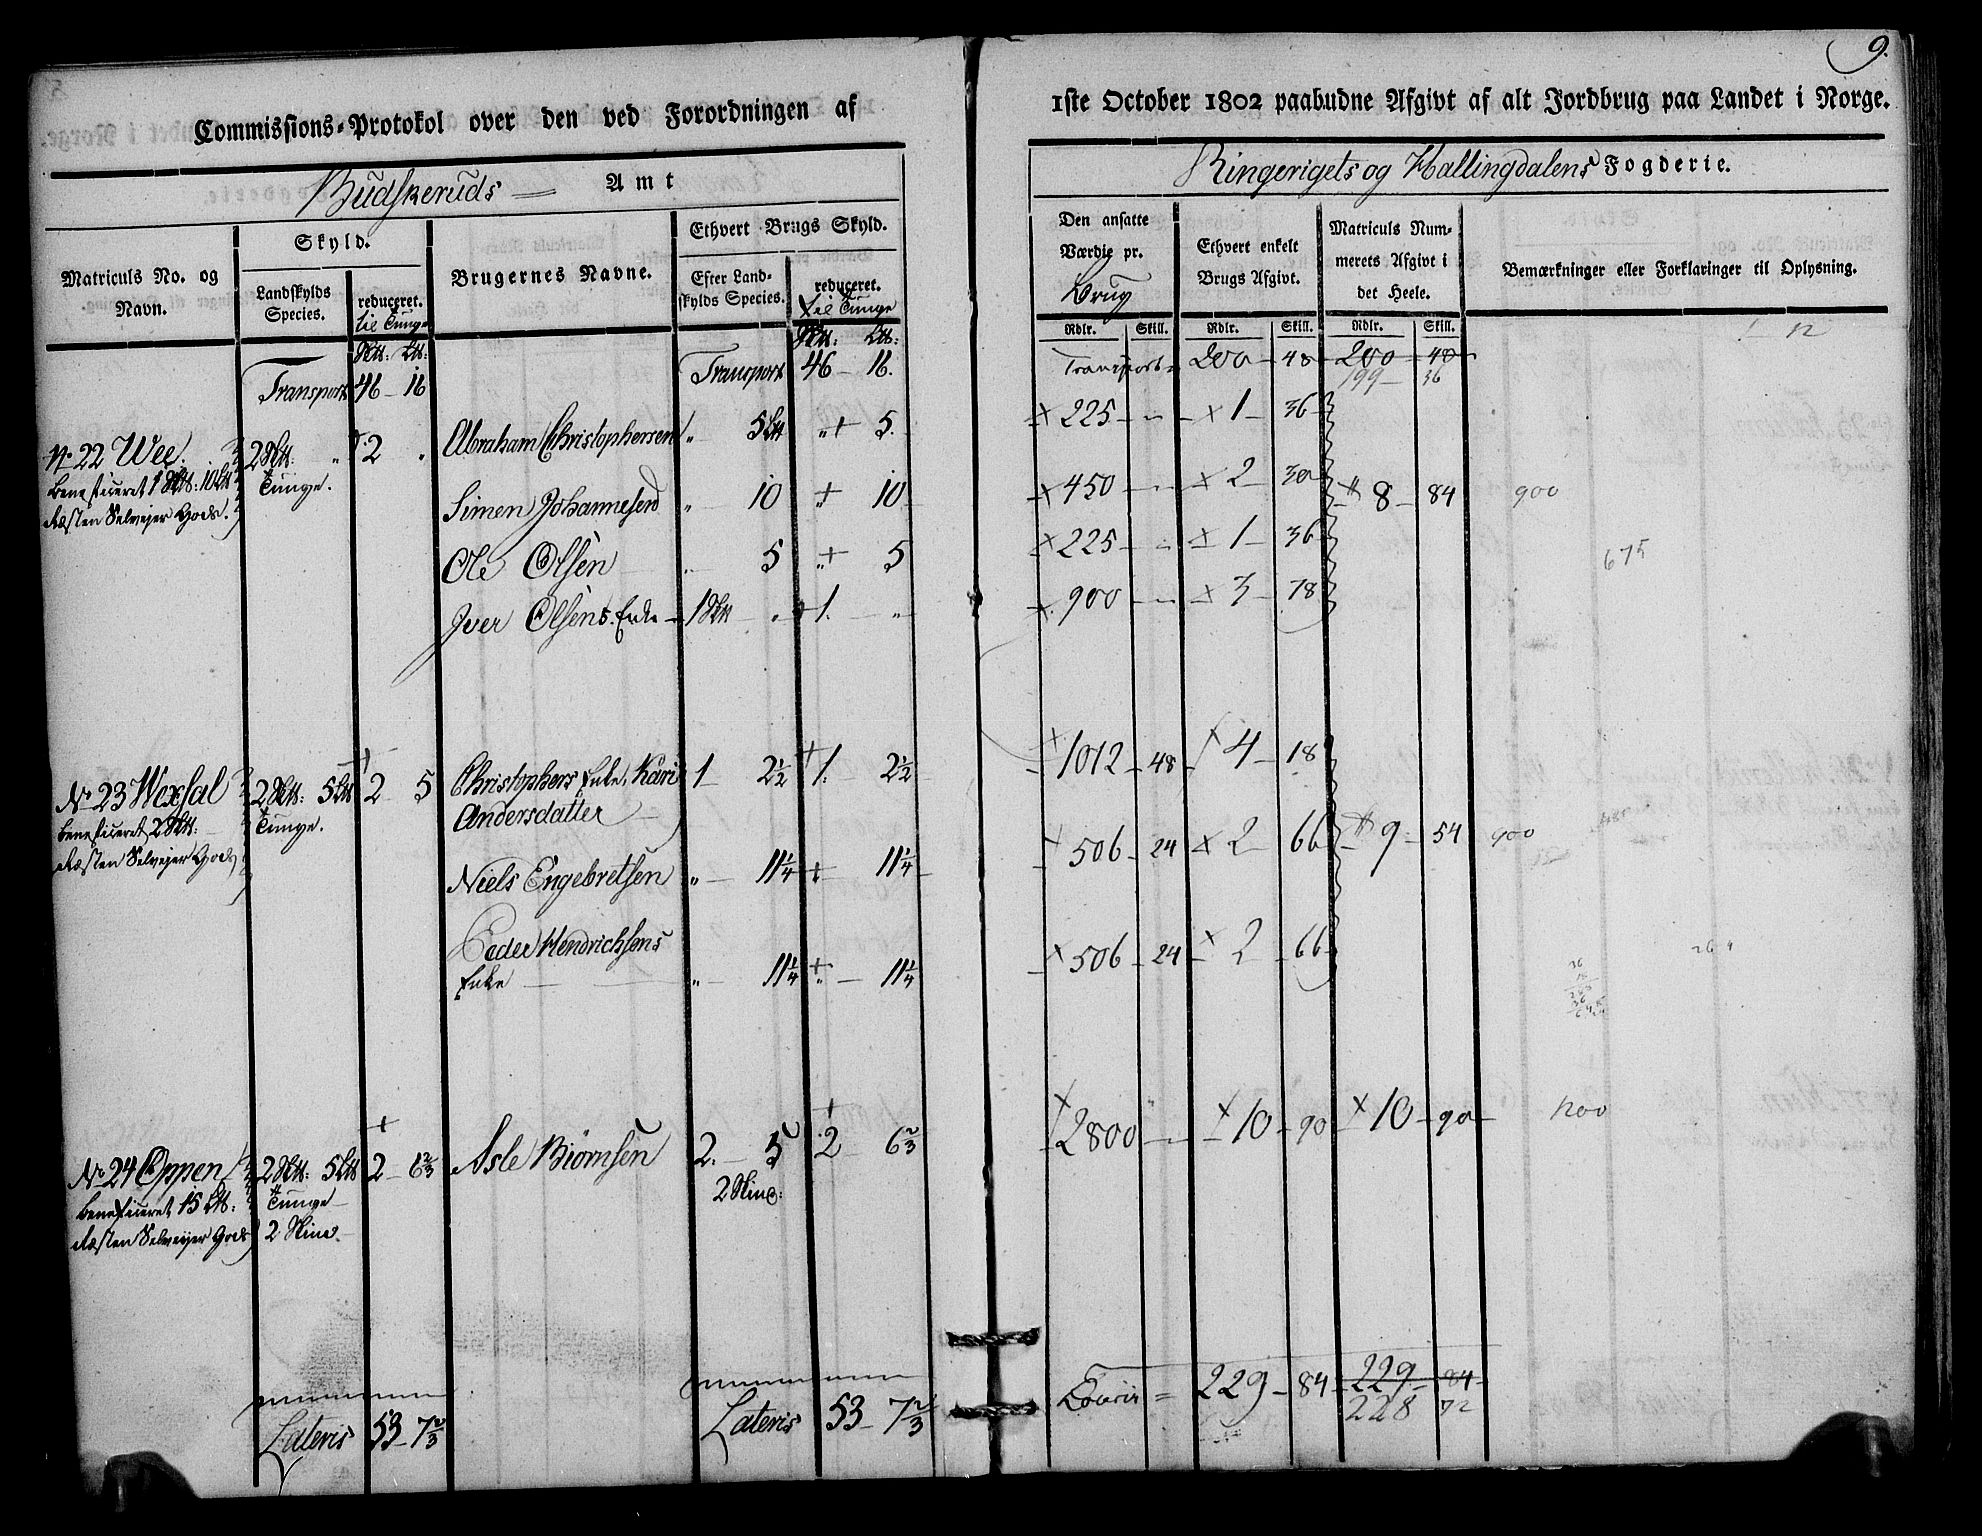 9.
Commissions-Protokol over den ved Forordningen af 1ste October 1802 paabudne Afgivt af alt Jordbrug paa Landet i Norge.
Budskeruds Amt
Ringerigets og Hallingdalens Fogderie.
Matriculs No. og Navn.
Skyld.
Landskylds Species.
reduceret. til Tunge
Brugernes Navne.
Ethvert Brugs Skyld.
Efter Landskylds Species.
reduceret. til Tunge
Den ansatte Værdie pr. Brug
Ethvert enkelt Brugs Afgivt.
Matriculs Nummerets Afgivt i det Heele.
Bemærkninger eller Forklaringer til Oplysning.
Rdlr. Skill. Rdlr. Skill. Rdlr. Skill.
Transport 46 - 16 Transport 46 - 16. Transport 200 - 48 200 - 48
199 - 36
No 22 Wee. 2 Sk℔: " 2 " Abraham Christophersen " 5 L℔ " 5. 225 - " 1 - 36
Beneficeret 1 Sk℔: 10 L℔ Tunge.
Resten Selvejer Gods. Simen Johannesens " 10 10 450 - " 2 - 30 8 - 84 900
Ole Olsen " 5 " 5 225 - " 1 - 36
675
Iver Olsens Enke 1 Sk℔ - " 1. - " 900 - " 3 - 78
No 23 Wexsal 2 Sk℔: 5 L℔ 2 5 Christophers Enke, Kari 1 2½ 1. 2½ 1012 - 48 4 - 18
Beneficeret 2 Sk℔: Tunge. Andersdatter
Resten Selvejer Gods Niels Engebretsen " 11¼ 11¼ 506 - 24 2 66 9 - 54 900
Peder Hendrichsens
Enke " 11¼ " 11¼ 506 - 24 2 - 66
No 24 Oppen 2 Sk℔: 5 L℔ 2 - 6⅔ Asle Biørnsen 2. 5 2 6⅔ 2800 - " 10 - 90 10 - 90 1200
Beneficeret 15 L℔: Tunge 2 Skind:
Resten Selvejer Gods 2 Skind.
Lateris 53 - 7⅔ Lateris 53 - 7⅔ 229 - 84 229 - 84
228 72